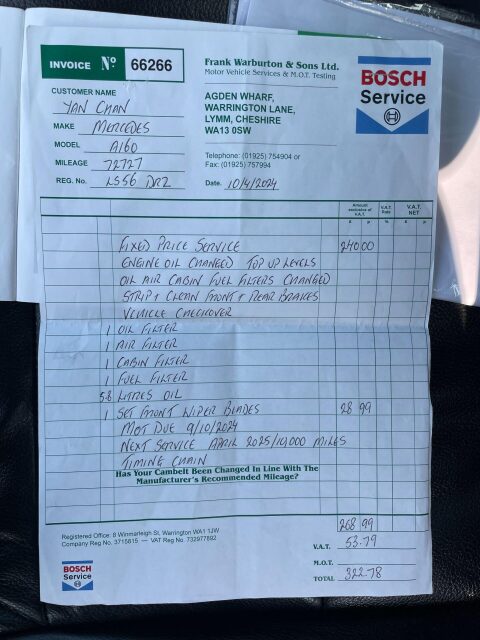 INVOICE Nº 66266
Frank Warburton & Sons Ltd.
Motor Vehicle Services & M.O.T. Testing
BOSCH
Service
CUSTOMER NAME
YAN CHAN
MAKE MERCEDES
MODEL A160
MILEAGE 72727
REG. No. LS56 DRZ
AGDEN WHARF,
WARRINGTON LANE,
LYMM, CHESHIRE
WA13 0SW
Telephone: (01925) 754904 or
Fax: (01925) 757994
Date. 10/4/2024
Amount exclusive of V.A.T. V.A.T. Rate V.A.T. NET
£ p % £ p
FIXED PRICE SERVICE 240.00
ENGINE OIL CHANGED TOP UP LEVELS
OIL AIR CABIN FUEL FILTERS CHANGED
STRIP + CLEAN FRONT + REAR BRAKES
VEHICLE CHECKOVER
1 OIL FILTER
1 AIR FILTER
1 CABIN FILTER
1 FUEL FILTER
5.8 LITRES OIL
1 SET FRONT WIPER BLADES 28 99
MOT DUE 9/10/2024
NEXT SERVICE APRIL 2025/10,000 MILES
TIMING CHAIN
Has Your Cambelt Been Changed In Line With The
Manufacturer's Recommended Mileage?
268 99
Registered Office: 8 Winmarleigh St, Warrington WA1 1JW
Company Reg No. 3715815 — VAT Reg No. 732977892
V.A.T. 53.79
M.O.T.
TOTAL 322.78
BOSCH
Service